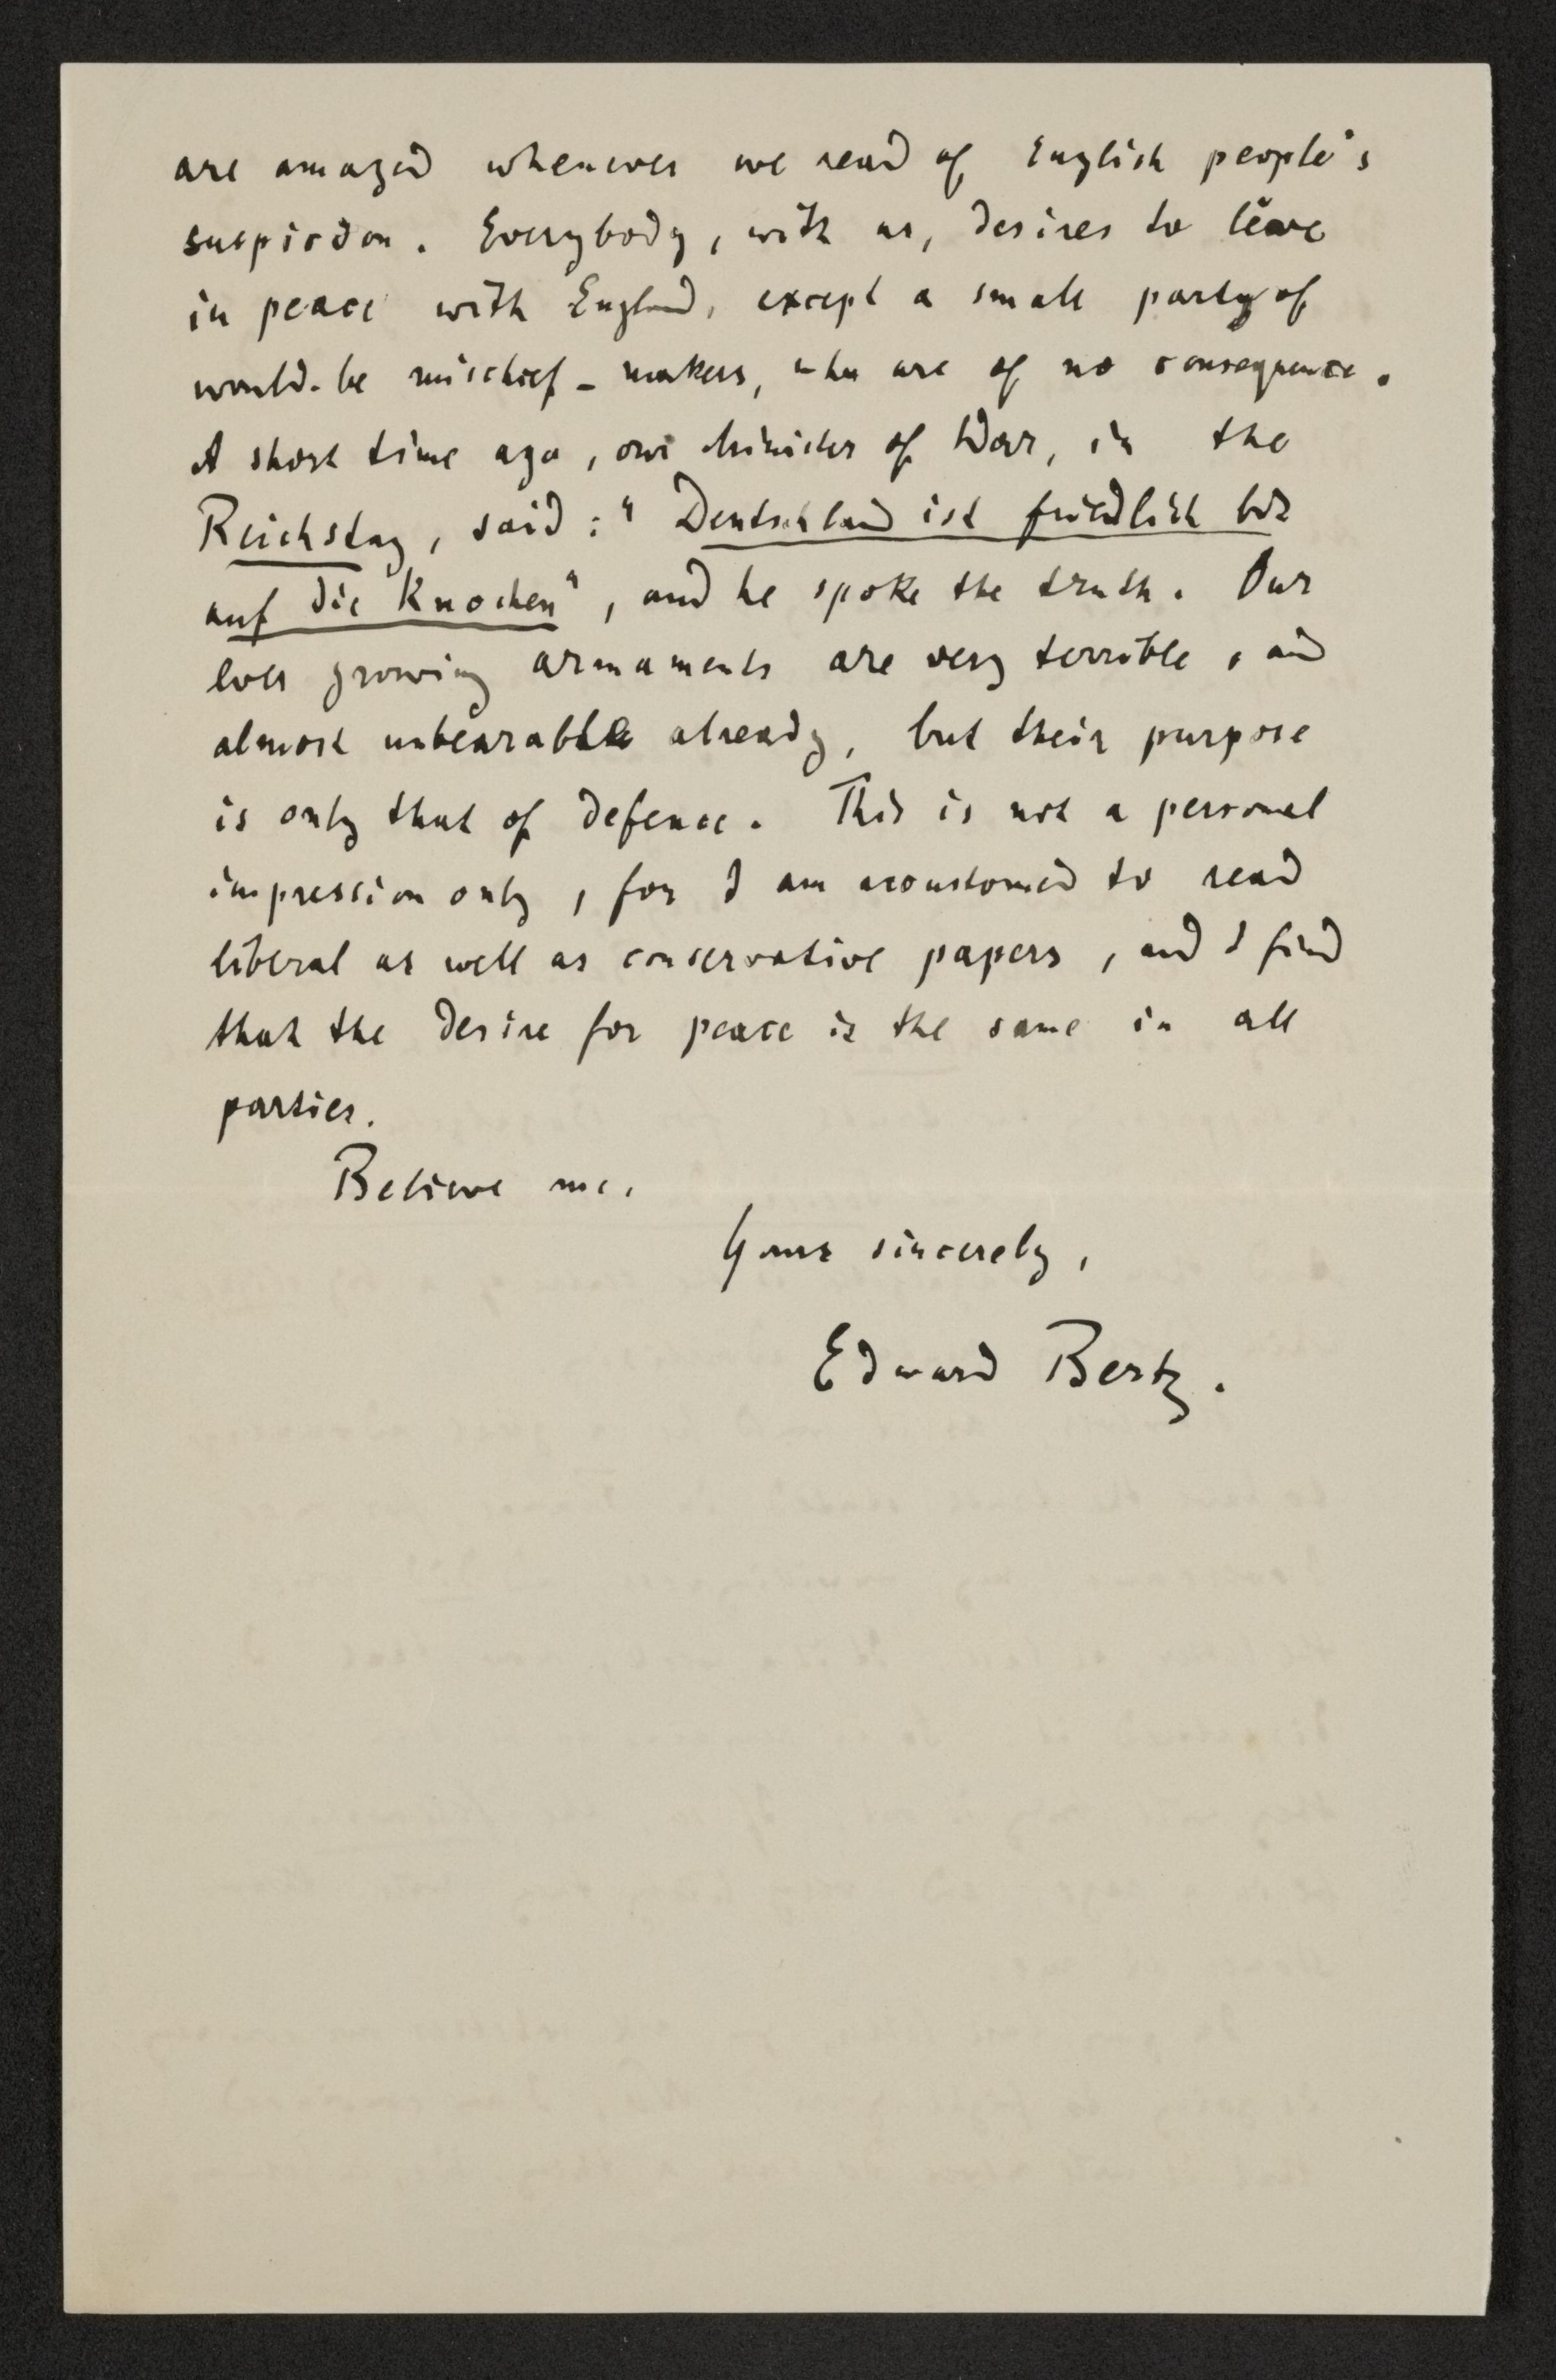 are amazed whenever we read of English people's
suspicion. Everybody, with us, desires to leave
in peace with England, except a small party of
would-be mischief-makers, who are of no consequence.
A short time ago, our Minister of War, in the
Reichstag, said: "Deutschland ist friedlich bis
auf die Knochen", and he spoke the truth. Our
ever growing armaments are very terrible, and
almost unbearable already, but their purpose
is only that of defence. This is not a personal
impression only, for I am accustomed to read
liberal as well as conservative papers, and I find
that the desire for peace is the same in all
parties.
Believe me,
Yours sincerely,
Edward Bertz.